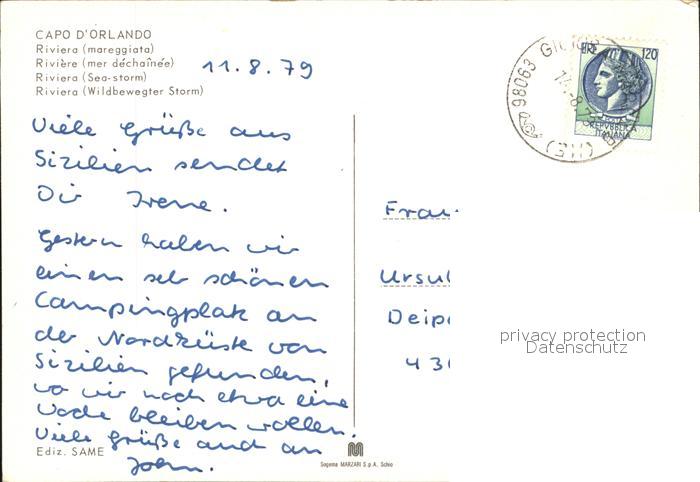 CAPO D'ORLANDO
Riviera (mareggiata)
Rivière (mer déchaînée)
Riviera (Sea-storm)
Riviera (Wildbewegter Storm)
11.8.79
Viele Grüße aus
Sizilien sendet
Dir Irene.
Gestern haben wir
einen seh schönen
Campingplatz an
der Nordküste von
Sizilien gefunden,
wo wir noch etwa eine
Woche bleiben wollen.
Viele Grüße auch an
John.
Ediz. SAME
Sogema MARZARI S.p.A. Schio
98063
(ME)
LIRE 120
REPVBBLICA
ITALIANA
Frau
Ursul
Deip
43
privacy protection
Datenschutz